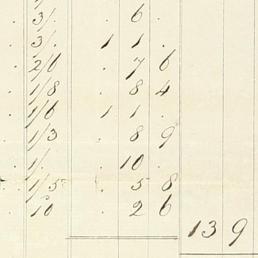 3/. . 6 .
. 3/. 1 1 .
. 2/6 . 7 6
. 1/8 . 8 4
. 1/6 1 1 .
. 1/3 . 8 9
. 1/. . 10 .
. 1/5 . 5 8
. 10 . 2 6
13 9